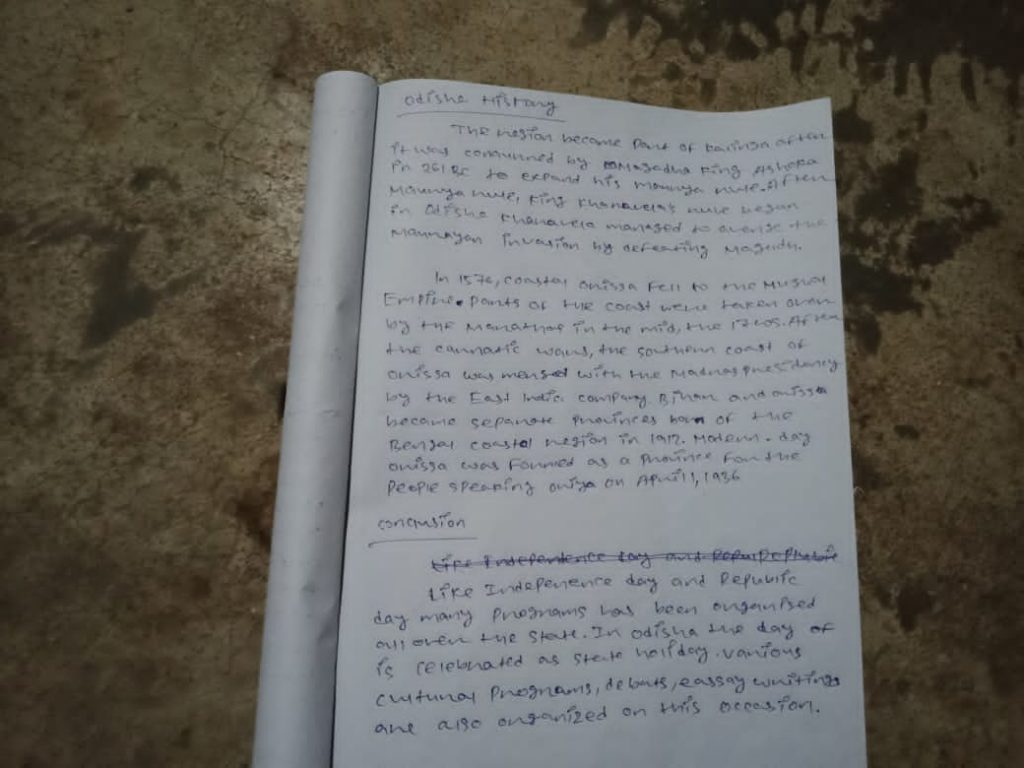 Odisha History
The region became Part of kalinga after
it was conqured by Magadha King Ashoka
in 261 BC to expand his maurya rule. After
Maurya rule, King Kharavela's rule began
in Odisha Kharavela managed to avenge the
Maurayan Invasion by defeating Magadh.
In 1576, coastal orissa fell to the Mughal
Empire. Parts of the coast were taken over
by the Marathas in the mid, the 1740s. After
the carnatic wars, the southern coast of
orissa was merged with the Madras presidency
by the East India company. Bihar and orissa
became separate Provinces of the
Bengal coastal region in 1912. Modern-day
orissa was Formed as a Province for the
People speaking oriya on April 1, 1936
conclusion
Like Independence day and
Like Indepenence day and Republic
day many Programs has been organised
all over the State. In odisha the day of
is celebrated as state holiday. various
cultural Programs, debats, eassay writings
are also organized on this occasion.